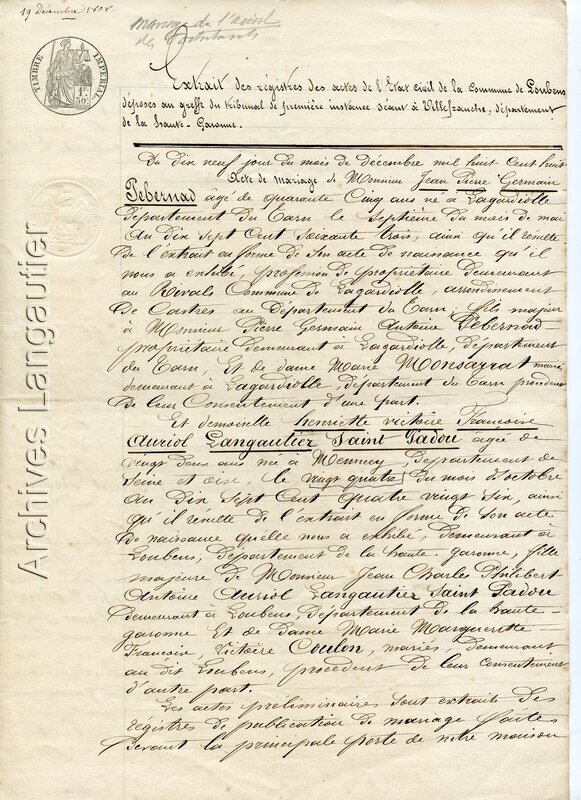 19 Décembre 1808.
Mariage de l'aieul
des
TIMBRE IMPÉRIAL
1F
50c
Extrait des registres des actes de l'Etat Civil de la Commune de Loubens
déposés au greffe du tribunal de première instance séant à Villefranche, département
de la haute-Garonne.
Du dix neuf jour du mois de décembre mil huit Cent huit
Acte de mariage de Monsieur Jean Pierre Germain
Pebernad âgé de quarante Cinq ans né à Lagardiolle
Département du Tarn le Septième du mois de mai
an dix Sept Cent Soixante trois, ainsi qu'il résulte
de l'extrait en forme de son acte de naissance qu'il
nous a exhibé, profession de propriétaire demeurant
au Rivals Commune de Lagardiolle, arrondissement
de Castres au Département du Tarn, fils majeur
à Monsieur Pierre Germain Antoine Pebernad
propriétaire demeurant à Lagardiolle, département
du Tarn, Et de dame Marie Monsarrat mariés
demeurant à Lagardiolle, département du Tarn procédant
de leur Consentement d'une part.
Et demoiselle henriette victoire Françoise
Auriol Langautier Saint Padou agée de
vingt deux ans née à Mennecy, Département de
Seine et oise, le vingt quatre du mois d'octobre
an Dix Sept Cent quatre vingt Six, ainsi
qu'il résulte de l'extrait en forme de son acte
de naissance quelle nous a exhibé, demeurant à
Loubens, département de la haute-garonne, fille
majeure de Monsieur Jean Charles Philibert
Antoine Auriol Langautier Saint Padou
demeurant à Loubens, Département de la haute-
garonne Et de Dame Marie Marguerette
Françoise, Victoire Coulon, mariés, demeurant
au dit Loubens, procédent de leur Consentement
d'autre part.
Les actes préliminaires sont extraits des
régistres de publication de mariage faites
devant la principale porte de notre maison
Archives Langautier